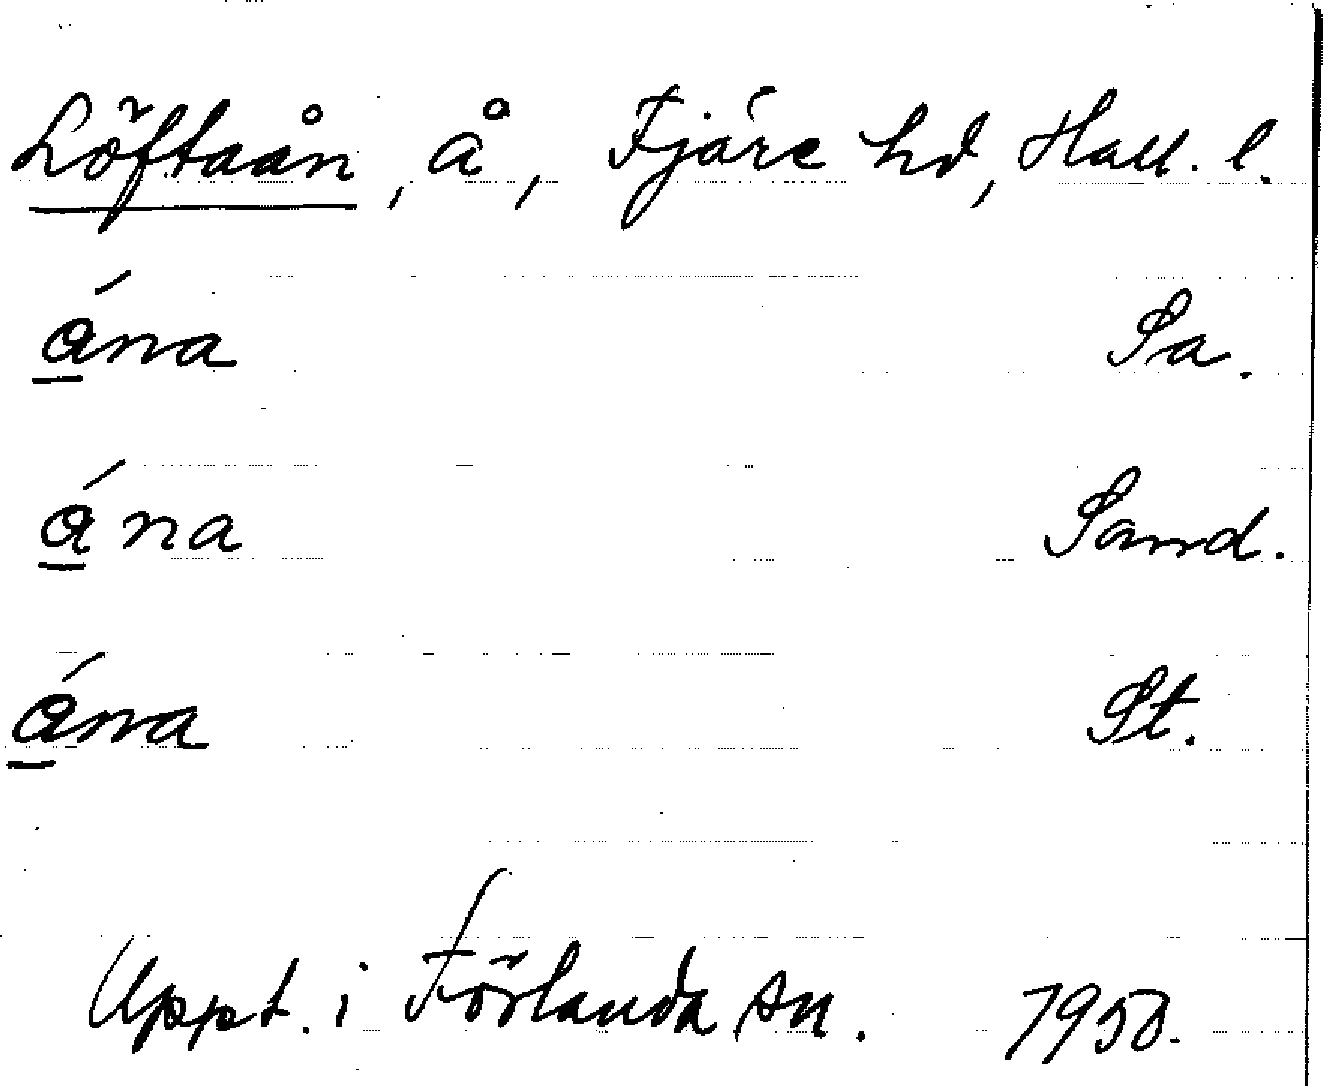 Löftaån, å, Fjäre hd, Hall. l.
ána Sa.
ána Sand.
ána St.
Uppt. i Förlanda sn. 1950.